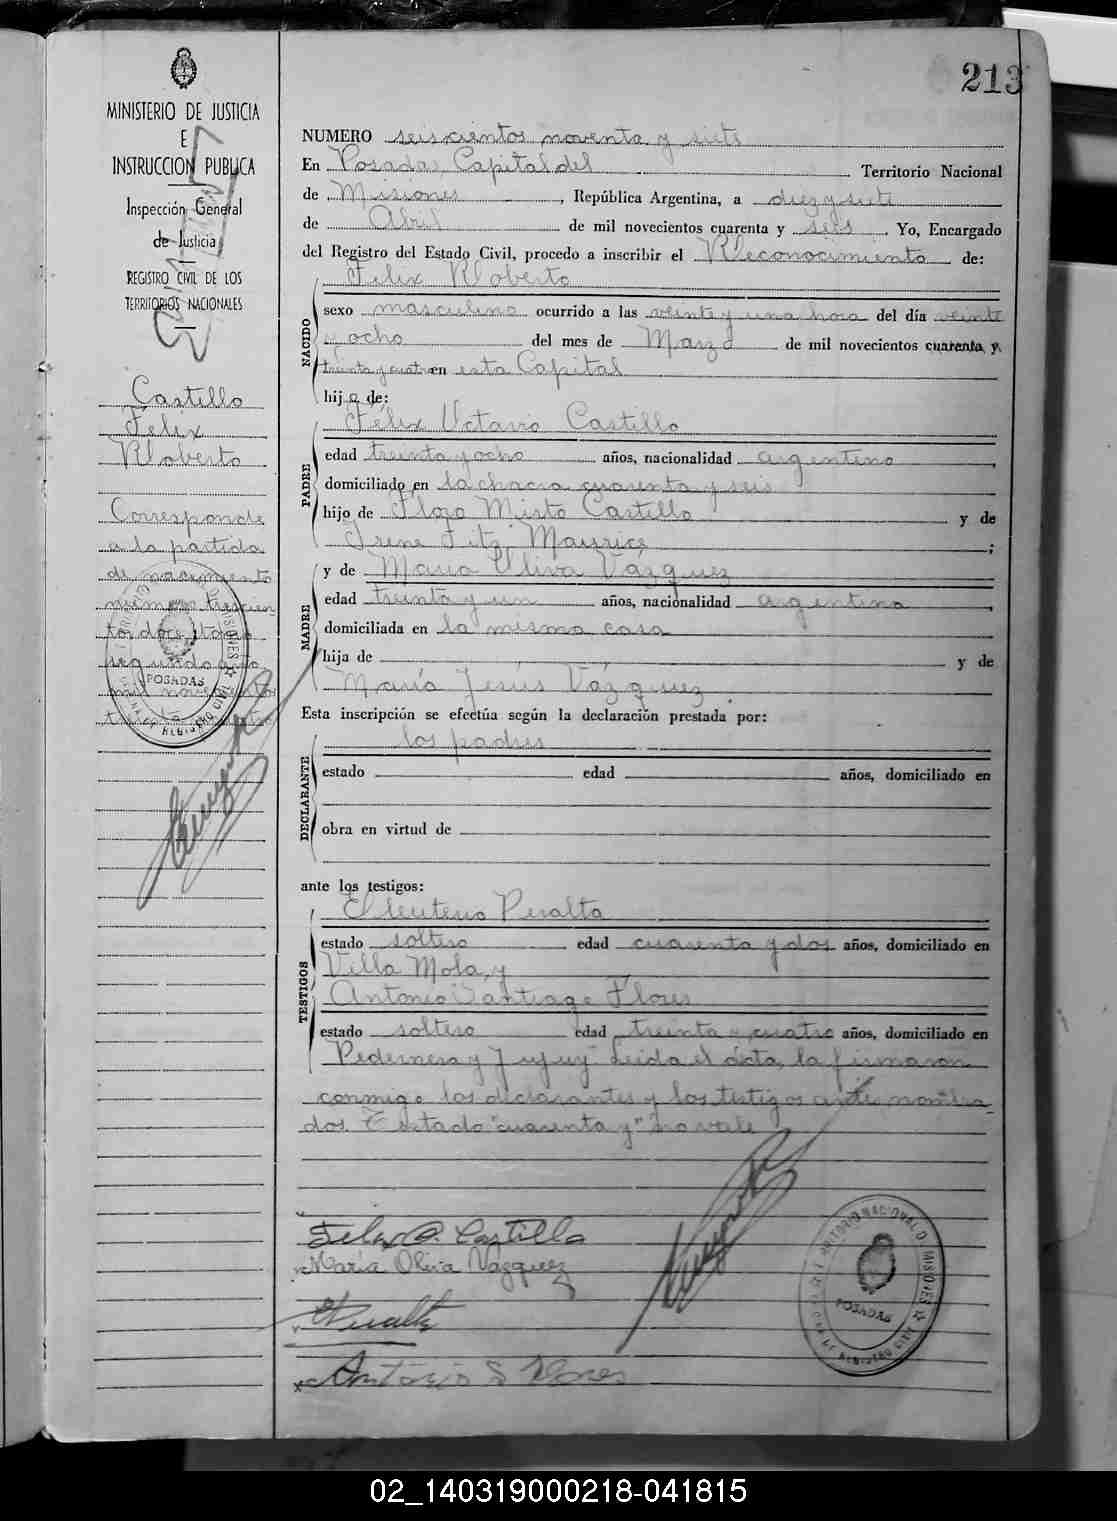 213
MINISTERIO DE JUSTICIA
E
INSTRUCCION PUBLICA
Inspección General
de Justicia
REGISTRO CIVIL DE LOS
TERRITORIOS NACIONALES
Castillo
Félix
Roberto
Corresponde
a la partida
de nacimiento
número trescien-
tos doce, tomo
segundo año
mil novecientos
treinta
POSADAS
NUMERO seiscientos noventa y siete
En Posadas, Capital del Territorio Nacional
de Misiones, República Argentina, a diez y siete
de Abril de mil novecientos cuarenta y seis Yo, Encargado
del Registro del Estado Civil, procedo a inscribir el Reconocimiento de:
Félix Roberto
NACIDO
sexo masculino ocurrido a las veinte y una hora del día veinte
y ocho del mes de Marzo de mil novecientos cuarenta y
treinta y cuatro en esta Capital
hijo de:
Félix Octavio Castillo
PADRE
edad treinta y ocho años, nacionalidad argentino,
domiciliado en la chacra cuarenta y seis
hijo de Floro Mirto Castillo y de
Irene Fitz Maurice;
y de María Oliva Vázquez
MADRE
edad treinta y un años, nacionalidad argentina,
domiciliada en la misma casa
hija de y de
María Jesús Vázquez.
Esta inscripción se efectúa según la declaración prestada por:
los padres
DECLARANTE
estado edad años, domiciliado en
obra en virtud de
ante los testigos:
Eleuterio Peralta
TESTIGOS
estado soltero edad cuarenta y dos años, domiciliado en
Villa Mola, y
Antonio Santiago Flores
estado soltero edad treinta y cuatro años, domiciliado en
Pedernera y Jujuy. Leída el acta, la firmaron
conmigo los declarantes y los testigos ante nombra-
dos. Testado "cuarenta y" no vale
Félix O. Castillo
María Oliva Vázquez
EPeralta
Antonio S Flores
TERRITORIO NACIONAL D. MISIONES
POSADAS
OFICINA DE REGISTRO CIVIL
02_140319000218-041815